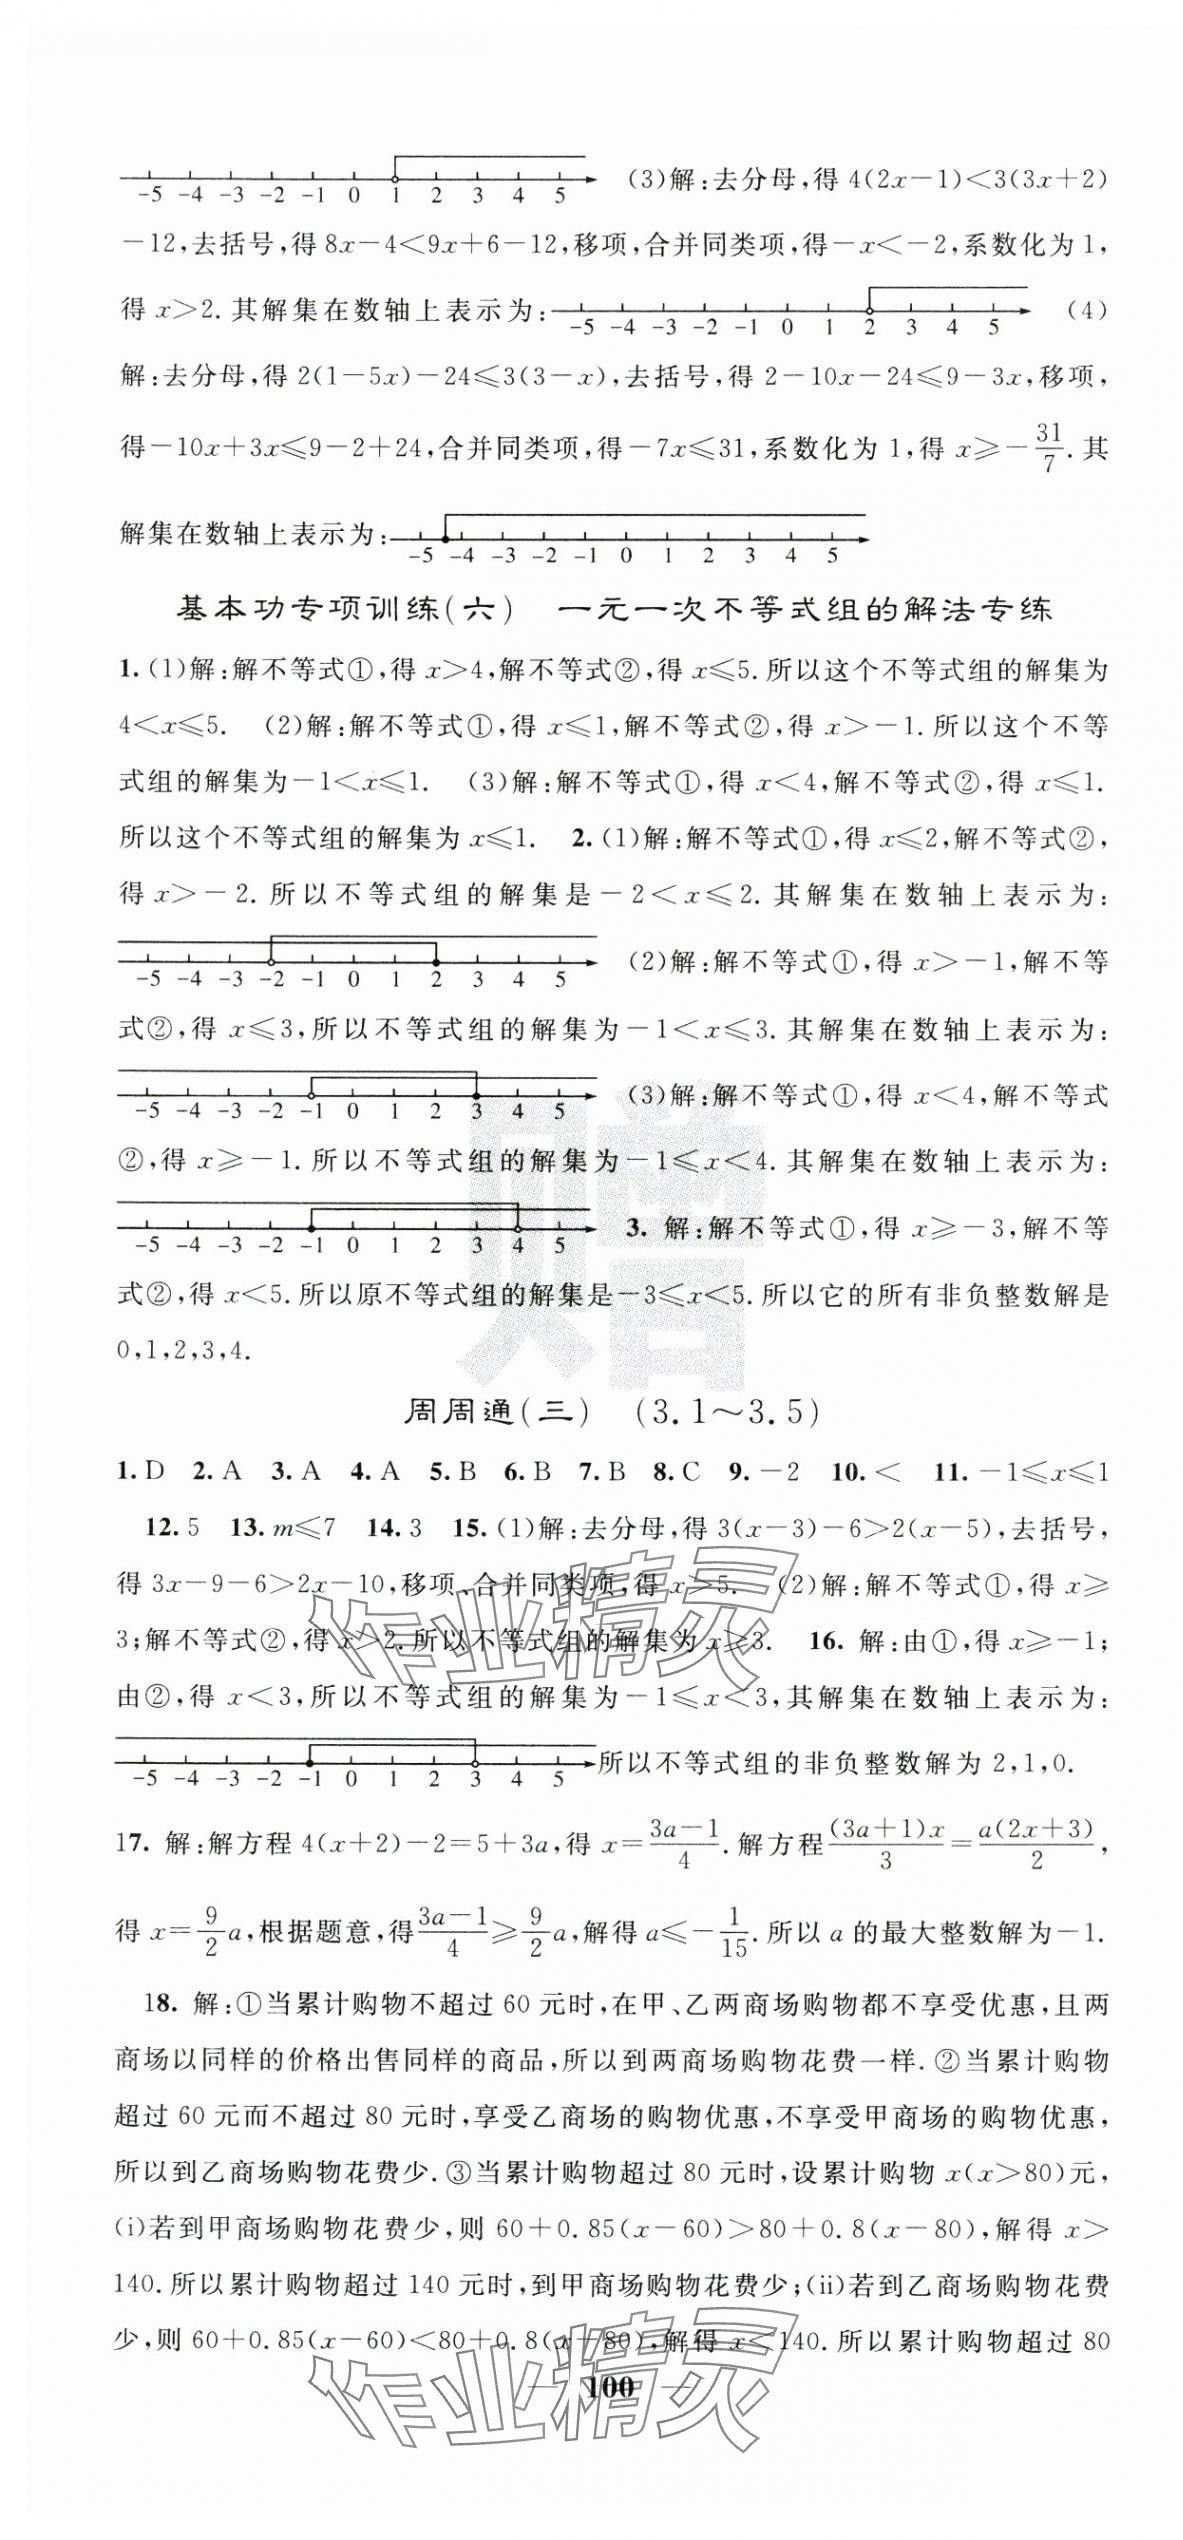 -5 -4 -3 -2 -1 0 1 2 3 4 5 (3)解:去分母,得 4(2x-1)<3(3x+2)
-12,去括号,得 8x-4<9x+6-12,移项,合并同类项,得-x<-2,系数化为 1,
得 x>2. 其解集在数轴上表示为: -5 -4 -3 -2 -1 0 1 2 3 4 5 (4)
解:去分母,得 2(1-5x)-24≤3(3-x),去括号,得 2-10x-24≤9-3x,移项,
得-10x+3x≤9-2+24,合并同类项,得-7x≤31,系数化为 1,得 x≥-31/7. 其
解集在数轴上表示为: -5 -4 -3 -2 -1 0 1 2 3 4 5
基本功专项训练(六) 一元一次不等式组的解法专练
1. (1)解:解不等式①,得 x>4,解不等式②,得 x≤5. 所以这个不等式组的解集为
4<x≤5. (2)解:解不等式①,得 x≤1,解不等式②,得 x>-1. 所以这个不等
式组的解集为-1<x≤1. (3)解:解不等式①,得 x<4,解不等式②,得 x≤1.
所以这个不等式组的解集为 x≤1. 2. (1)解:解不等式①,得 x≤2,解不等式②,
得 x>-2. 所以不等式组的解集是-2<x≤2. 其解集在数轴上表示为:
-5 -4 -3 -2 -1 0 1 2 3 4 5 (2)解:解不等式①,得 x>-1,解不等
式②,得 x≤3,所以不等式组的解集为-1<x≤3. 其解集在数轴上表示为:
-5 -4 -3 -2 -1 0 1 2 3 4 5 (3)解:解不等式①,得 x<4,解不等式
②,得 x≥-1. 所以不等式组的解集为-1≤x<4. 其解集在数轴上表示为:
-5 -4 -3 -2 -1 0 1 2 3 4 5 3. 解:解不等式①,得 x≥-3,解不等
式②,得 x<5. 所以原不等式组的解集是-3≤x<5. 所以它的所有非负整数解是
0,1,2,3,4.
赠
周周通(三) (3.1~3.5)
1. D 2. A 3. A 4. A 5. B 6. B 7. B 8. C 9. -2 10. < 11. -1≤x≤1
12. 5 13. m≤7 14. 3 15. (1)解:去分母,得 3(x-3)-6>2(x-5),去括号,
得 3x-9-6>2x-10,移项、合并同类项,得 x>5. (2)解:解不等式①,得 x≥
3;解不等式②,得 x>2. 所以不等式组的解集为 x≥3. 16. 解:由①,得 x≥-1;
作业精灵
由②,得 x<3,所以不等式组的解集为-1≤x<3,其解集在数轴上表示为:
-5 -4 -3 -2 -1 0 1 2 3 4 5 所以不等式组的非负整数解为 2,1,0.
17. 解:解方程 4(x+2)-2=5+3a,得 x=(3a-1)/4. 解方程(3a+1)x/3=a(2x+3)/2,
得 x=9/2 a,根据题意,得(3a-1)/4≥9/2 a,解得 a≤-1/15. 所以 a 的最大整数解为-1.
18. 解:①当累计购物不超过 60 元时,在甲、乙两商场购物都不享受优惠,且两
商场以同样的价格出售同样的商品,所以到两商场购物花费一样. ②当累计购物
超过 60 元而不超过 80 元时,享受乙商场的购物优惠,不享受甲商场的购物优惠,
所以到乙商场购物花费少. ③当累计购物超过 80 元时,设累计购物 x(x>80)元,
(i)若到甲商场购物花费少,则 60+0.85(x-60)>80+0.8(x-80),解得 x>
140. 所以累计购物超过 140 元时,到甲商场购物花费少;(ii)若到乙商场购物花费
少,则 60+0.85(x-60)<80+0.8(x-80),解得 x<140. 所以累计购物超过 80
作业精灵
— 100 —